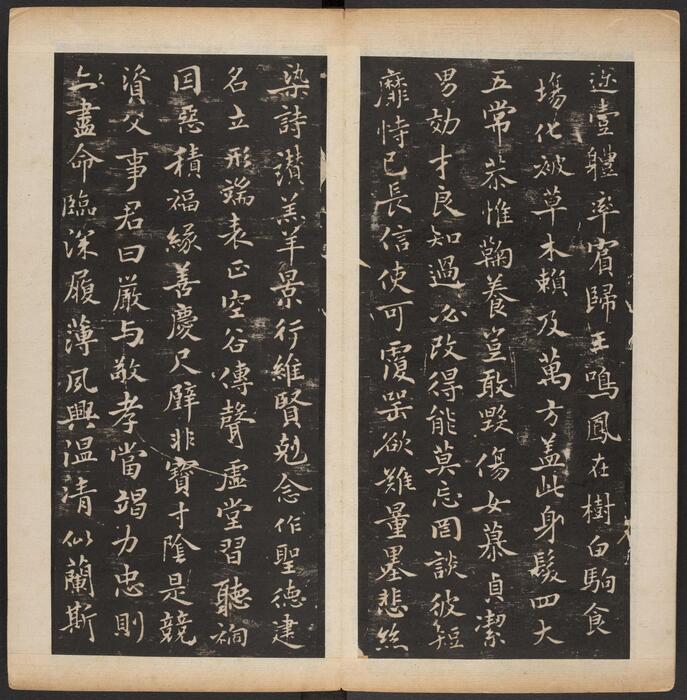 迩壹體率賓歸王鳴鳳在樹白駒食
塲化被草木賴及萬方盖此身髮四大
五常恭惟鞠養豈敢毀傷女慕貞潔
男効才良知過必改得能莫忘罔談彼短
靡恃己長信使可覆器欲難量墨悲絲
染詩讃羔羊景行維賢剋念作聖德建
名立形端表正空谷傳聲虛堂習聽禍
囙惡積福緣善慶尺璧非寶寸陰是競
資父事君曰嚴与敬孝當竭力忠則
盡命臨深履薄夙興温清似蘭斯